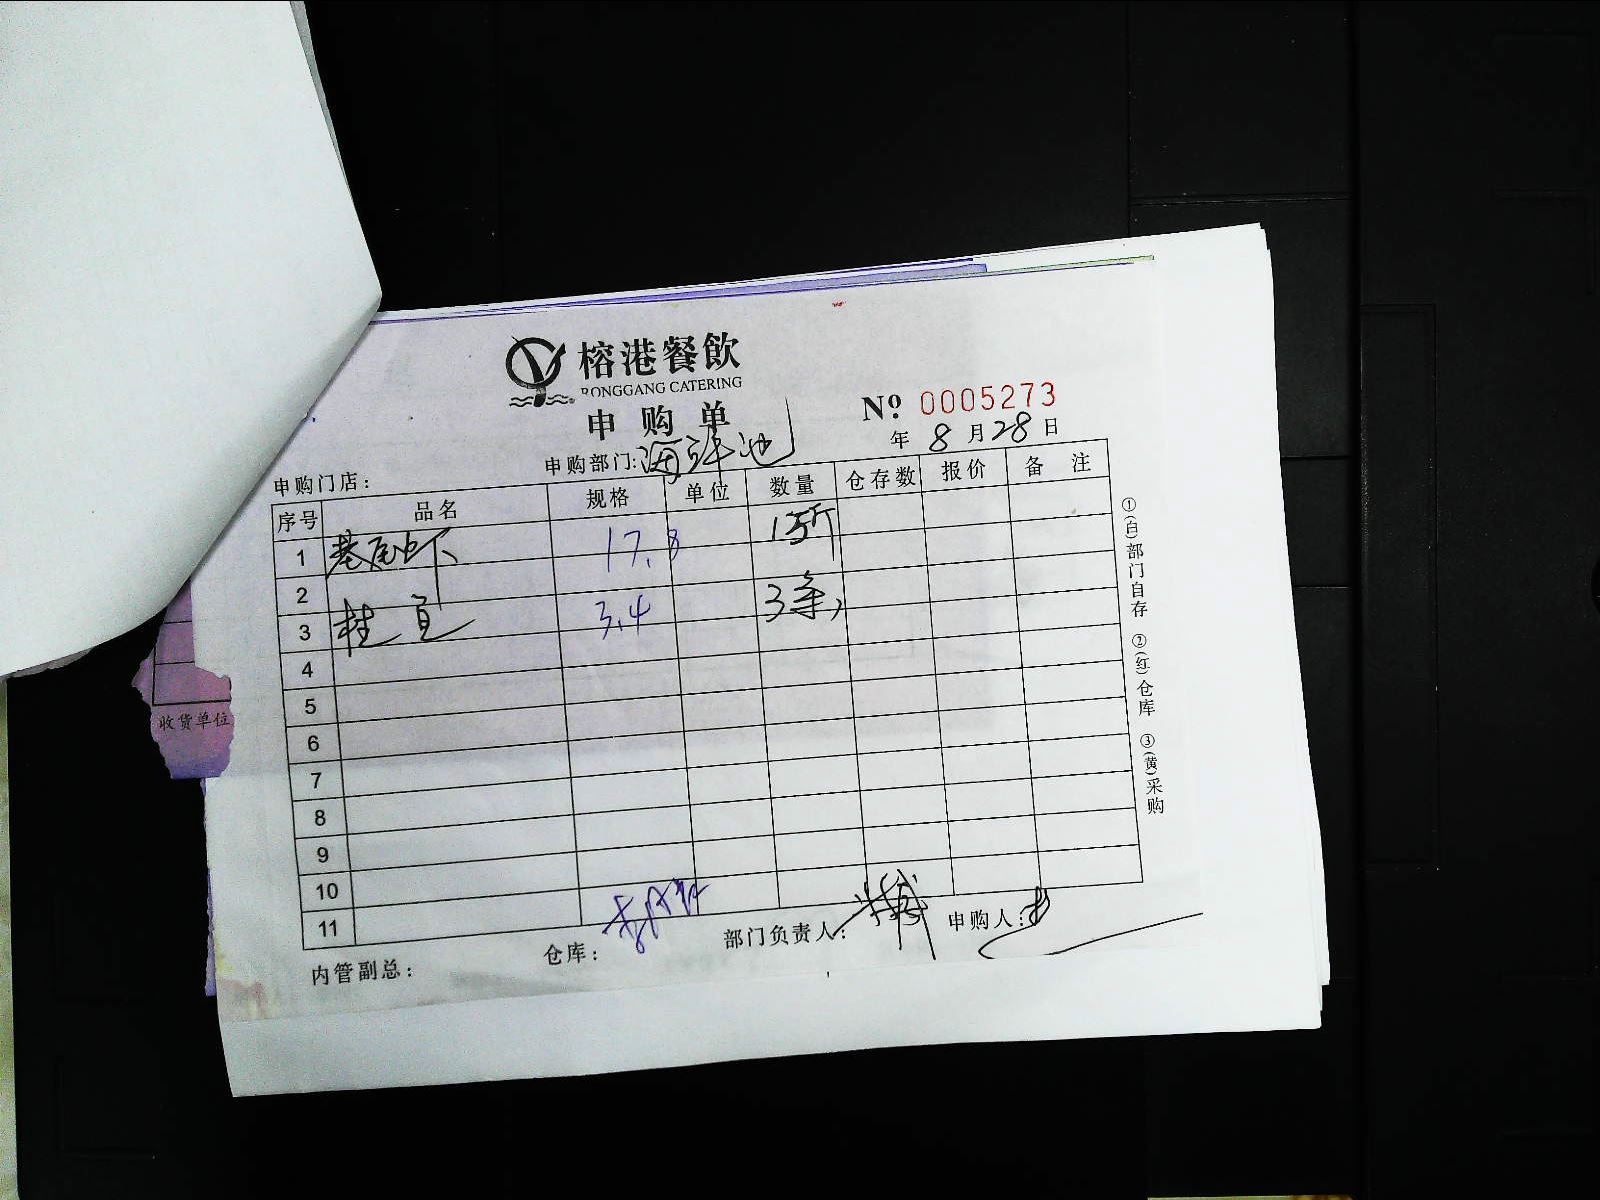 榕港餐飲
RONGGANG CATERING
申购单
№ 0005273
年 8 月 28 日
申购门店: 申购部门: 海鲜池
序号 品名 规格 单位 数量 仓存数 报价 备注
1 基尾虾 17.8 15斤
2
3 桂鱼 3.4 3条
4
5
6
7
8
9
10
11
内管副总: 仓库: 部门负责人: 申购人:
①(白)部门自存 ②(红)仓库 ③(黄)采购
收货单位